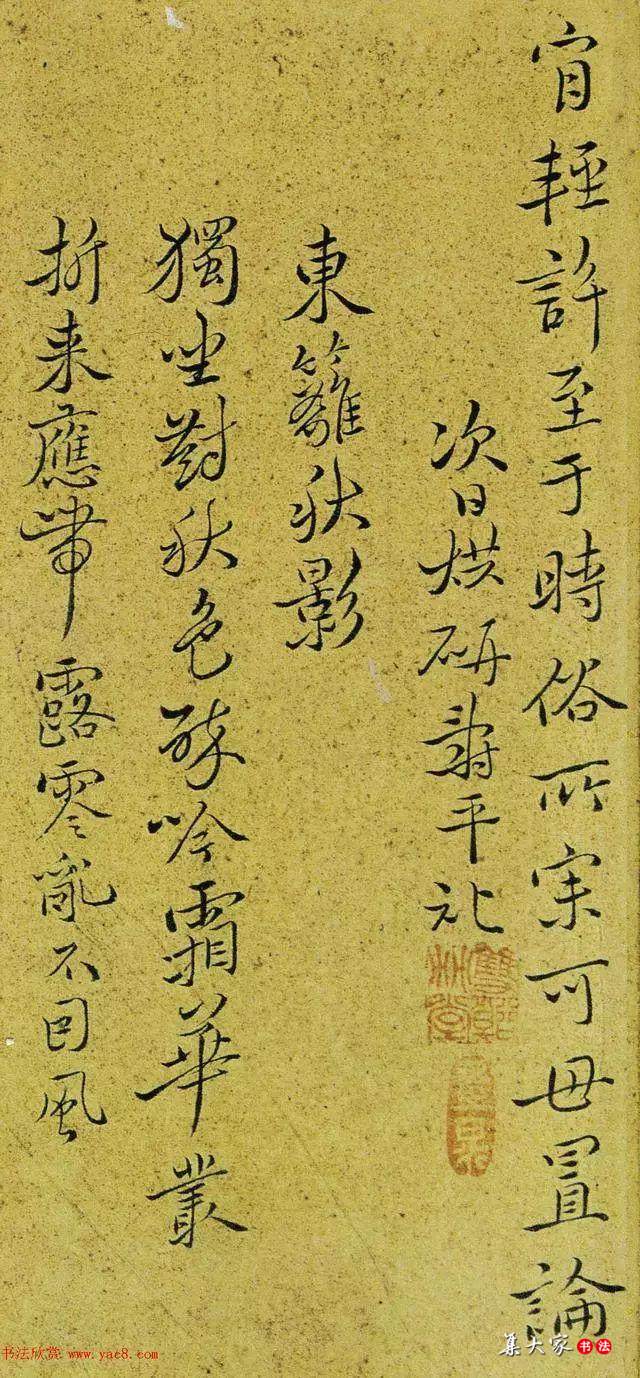 肎輕許至于時俗所宗可毋置論
次日烘研壽平記
東籬秋影
獨坐對秋色醉吟霜華叢
折来應帶露零亂不因風
书法欣赏 www.yac8.com
集大家 书法